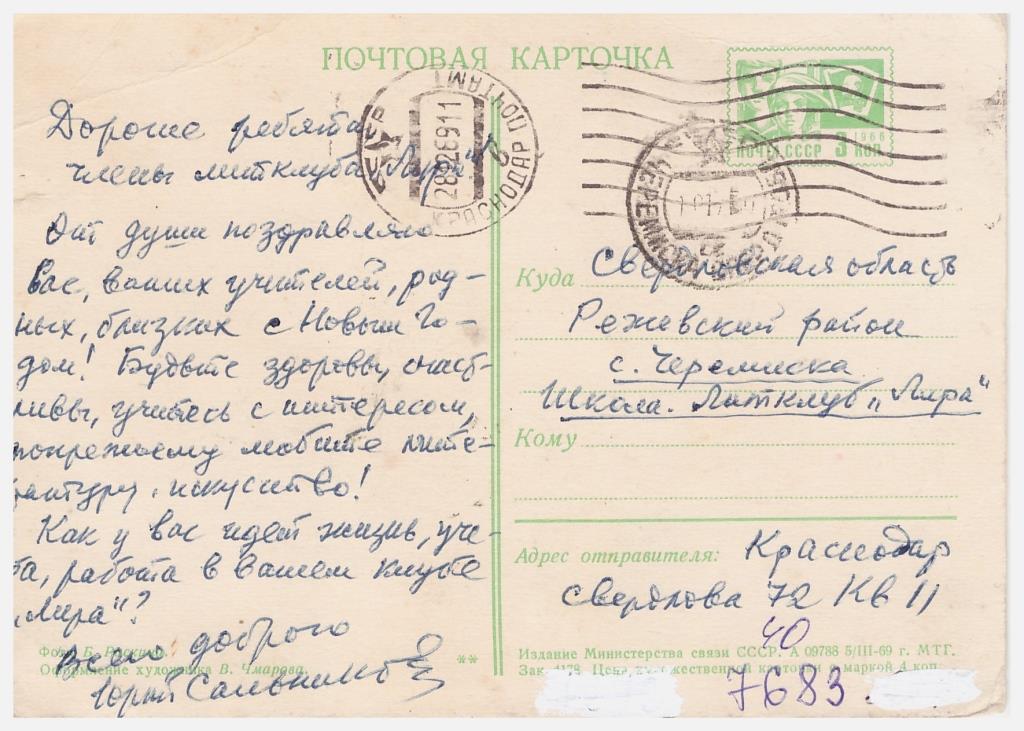 ПОЧТОВАЯ КАРТОЧКА
Дорогие ребята
члены литклуба „Лира"!
От души поздравляю
Вас, ваших учителей, род-
ных, близких с Новым Го-
дом! Будьте здоровы, счаст-
ливы, учитесь с интересом,
попрежнему любите лите-
ратуру, искусство!
Как у вас идет жизнь, уче-
ба, работа в вашем клубе
„Лира"?
Всего доброго
Юрий Сальников
Фото Б. Раскина.
Оформление художника В. Чмарова.
СССР
КРАСНОДАР ПОЧТАМТ
281269 11
ПОЧТА СССР 3 КОП
1966
Куда Свердловская область
Режевский район
с. Черемисска
Школа. Литклуб „Лира"
Кому
Адрес отправителя: Краснодар
Свердлова 72 Кв 11
40
**
Издание Министерства связи СССР. А 09788 5/III-69 г. МТГ.
Зак. 4178 Цена художественной карточки с маркой 4 коп.
7683